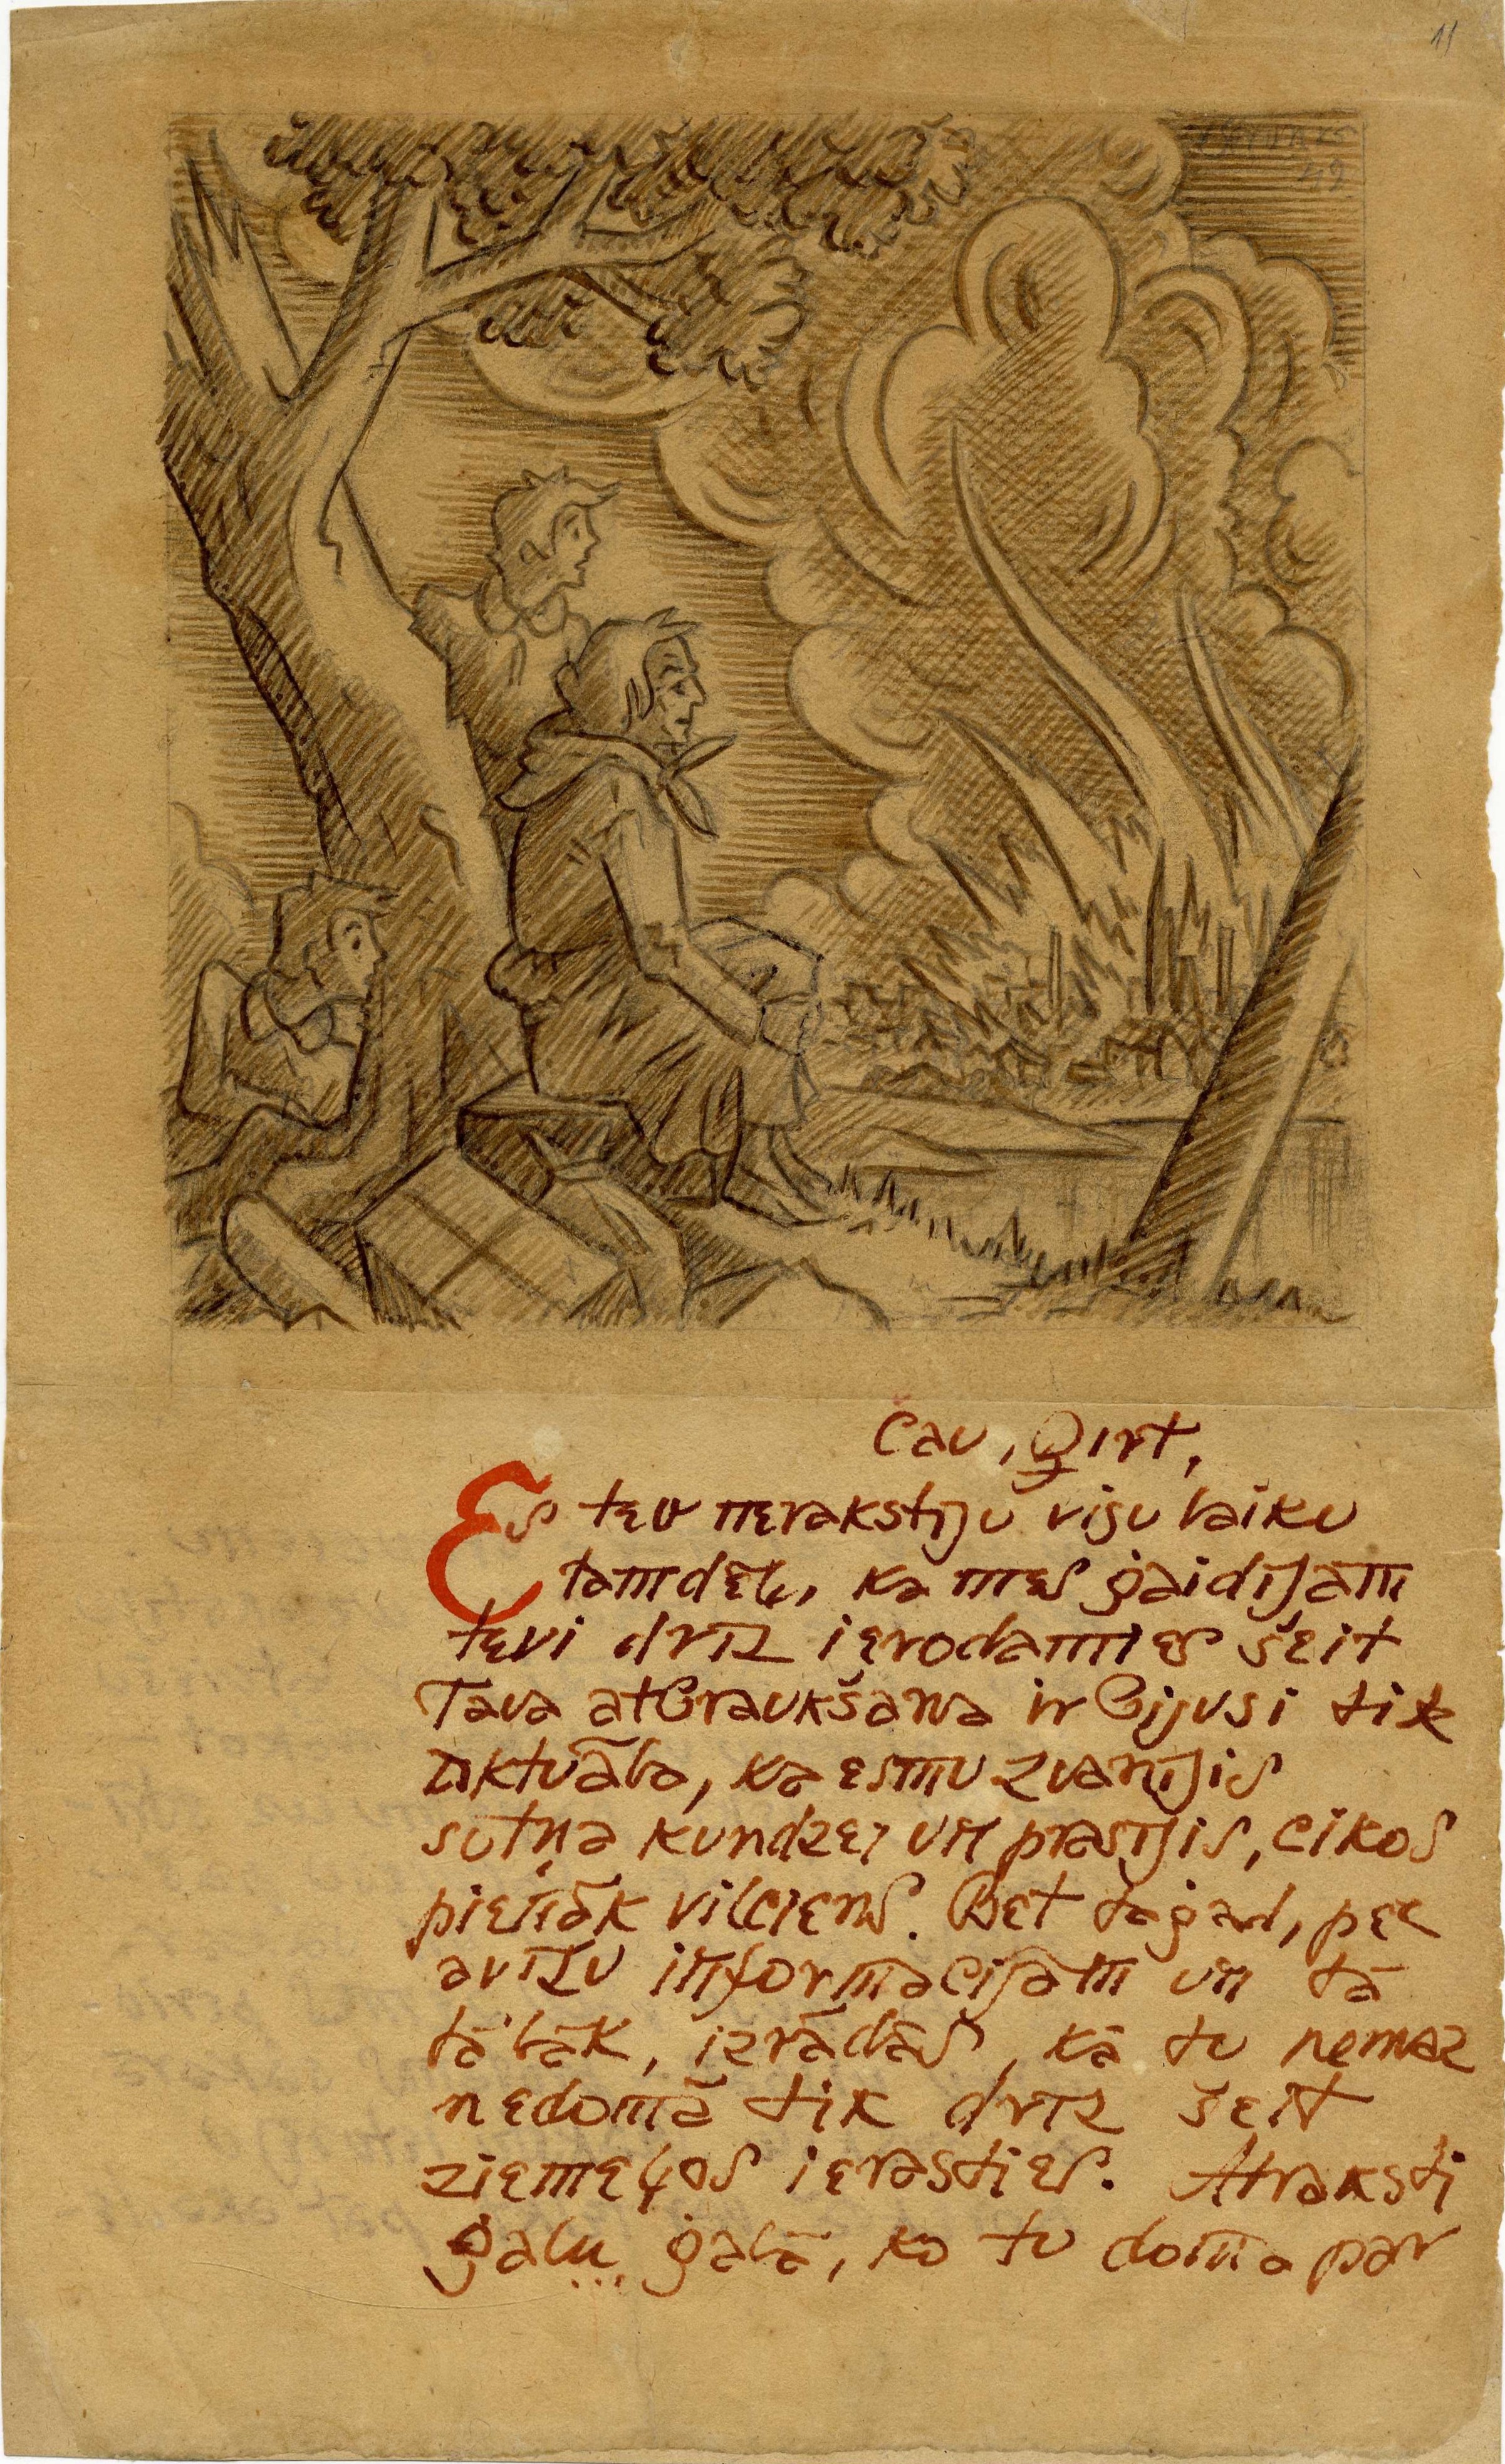 11
49
Čau, Ģirt,
Es tev nerakstīju visu laiku
tamdēļ, ka mes gaidījām
tevi drīz ierodamies šeit
Tava atbraukšana ir bijusi tik
aktuāla, ka esmu zvanījis
sutņa kundzei un prasījis, cikos
pienāk vilciens. Bet tagad, pēc
avīžu informācijām un tā
tālāk, izrādās, ka tu nemaz
nedomā tik drīz šeit
ziemeļos ierasties. Atraksti
galu galā, ko tu domā par